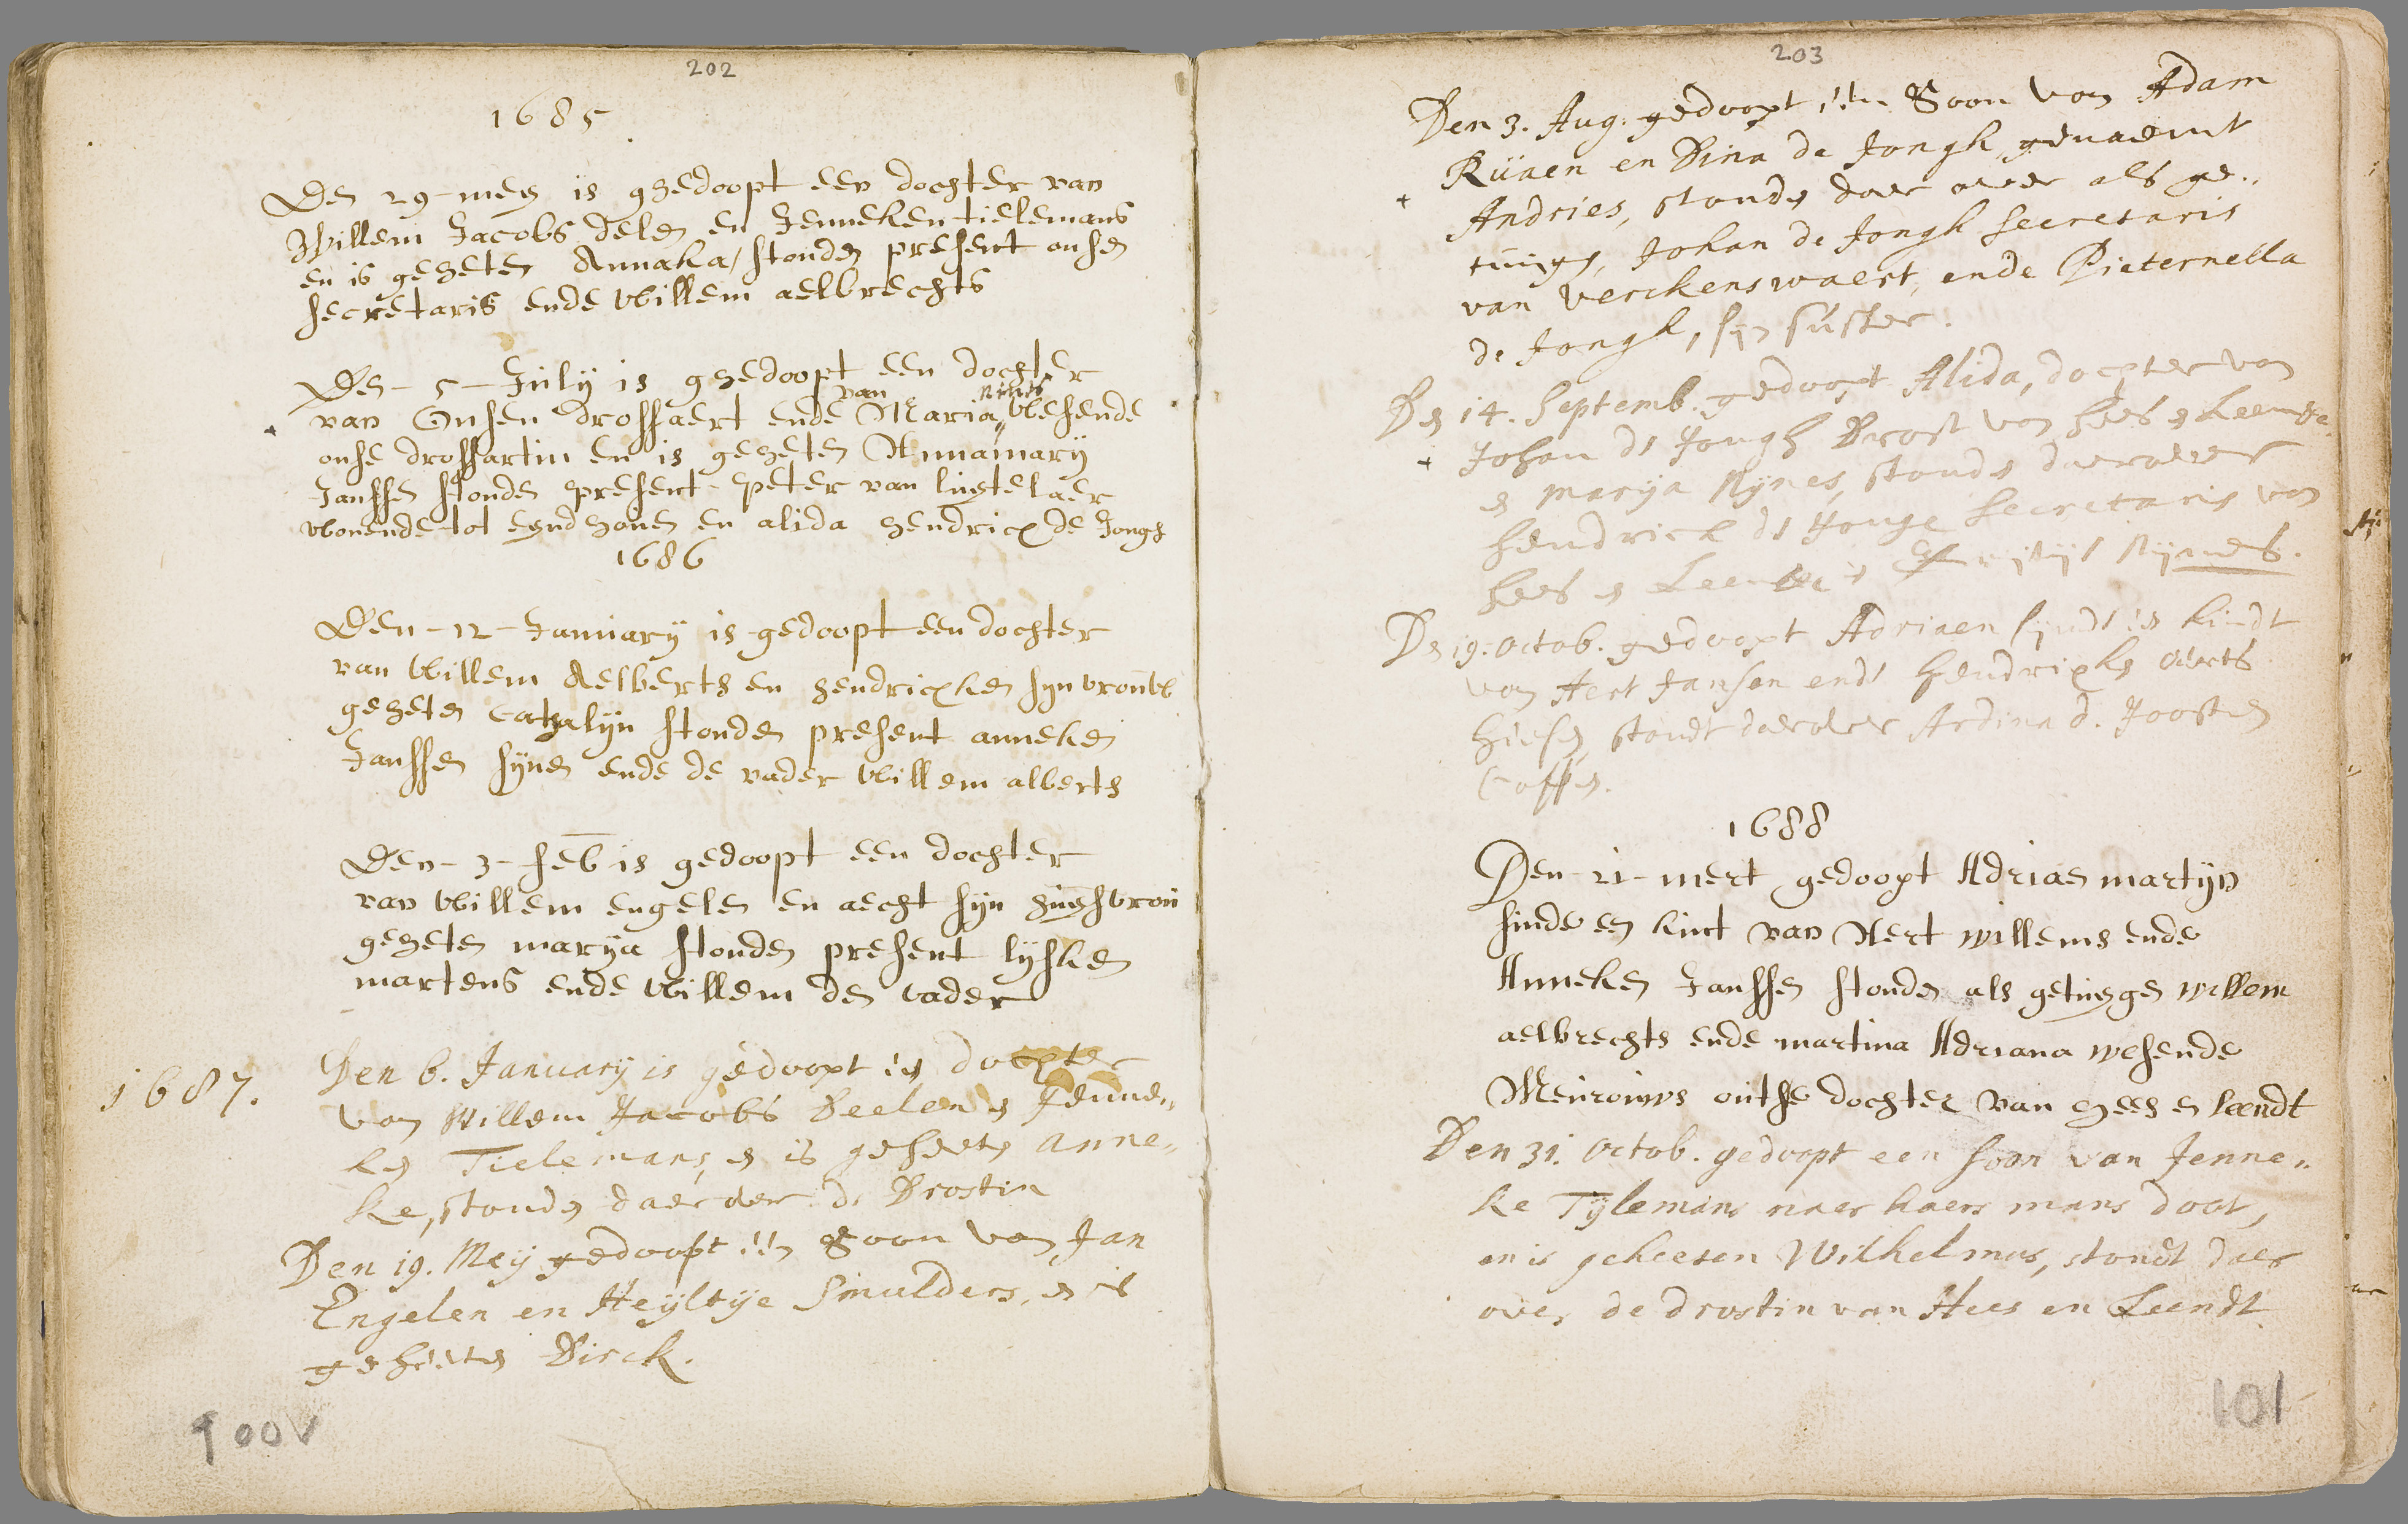 202
1685
Den 29-mey is ghedoopt een dochter van
Willem Jacobs delen en Jenneken tielemans
en is geheten Annaka, stonden present onsen
secretaris ende Willem aelbrechts
Den - 5 - July is ghedoopt een dochter
van
van Onsen drossaert ende Maria Wesende
onse drossartin en is geheten Annamary
Janssen stonden present - peter van lustelaer
Wonende tot eyndhoven en alida hendricx de Jongh
1686
Den - 12 - January is gedoopt een dochter
van Willem Aelberts en hendricxken syn vrouW
geheten Cathalyn stonden present anneken
Janssen synen ende de vader Willem alberts
Den - 3 - feb is gedoopt een dochter
van Willem engelen en aecht syn huysvrou
geheten marya stonden present lysken
martens ende Willem den vader
1687.
Den 6. January is gedoopt een dochter
van Willem Jacobs Deelen en Jenne„
ken Tielemans, en is geheeten Anne„
ke, stonden daerover de Drostin
Den 19. Mey gedoopt een Soon van Jan
Engelen en Heyltije Smulders, en is
geheeten Dirck.
100V
203
Den 3. Aug. gedoopt een Soon van Adam
Rünen en Dina de Jongh, genaemt
Andries, stonden daer over als ge„
tuigen, Johan de Jongh secretaris
van Verckenswaert, ende Pieternella
de Jongh, syn suster.
Den 14. Septemb. gedoopt Alida, dochter van
Johan de Jongh Drost van hees en Leende
en Marija Rynes, stonden daerover
Hendrick de Jonge Secretaris van
hees en Leende en Rynes.
Den 19. Octob. gedoopt Adriaen synde een kindt
van Aert Jansen ende Hendrixken Aerts
stondt daerover Ardina d. Joosten
1688
Den - 21 - mert gedoopt Adriaen martyn
sinde een kint van Aert willems ende
Anneken Janssen stonden als getuygen willem
aelbrechts ende martina Adriana wesende
Mevrouws outse dochter van hees en leendt
Den 31. Octob. gedoopt een soon van Jenne„
ke Tylemans naer haers mans doot,
en is geheeten Wilhelmus, stondt daer
over de drostin van Hees en Leendt
101